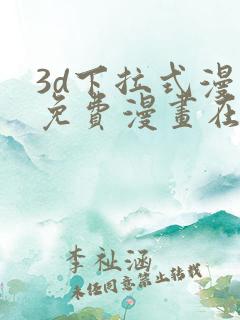 3d下拉式漫
免費漫畫在
李祉涵
未经同意禁止转载